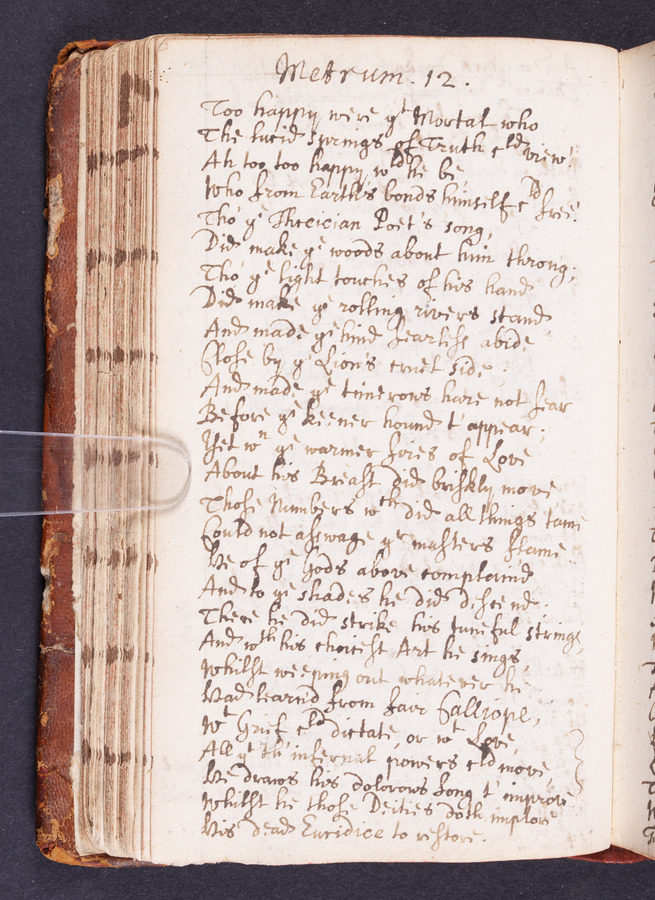 Metrum. 12.
Too happy were yt Mortal who
The lucid springs of Truth cld view!
Ah too too happy, wld he be
Who from Earth's bonds himself cld free!
Tho' ye Threician Poet's song,
Did make ye woods about him throng;
Tho' ye light touches of his hand
Did make ye rolling rivers stand
And made ye hind fearless abide
Close by ye Lion's cruel side.
And made ye timerows hare not fear
Before ye keener hound t' appear;
Yet wn ye warmer fires of Love
About his Breast did briskly move
Those Numbers wch did all things tame
Could not asswage yr masters flame
He of ye Gods above complaind
And to ye shades he did descend.
There he did strike his tuneful strings,
And wth his choicest Art he sings,
Whilst weeping out whatever he
Had learn'd from fair Calliope,
Wt Grief cld dictate, or wt Love,
All yt th' infernal powers cld move,
He draws his dolorows song t' improve
Whilst he those Deities doth implore
His dead Euridice to restore.